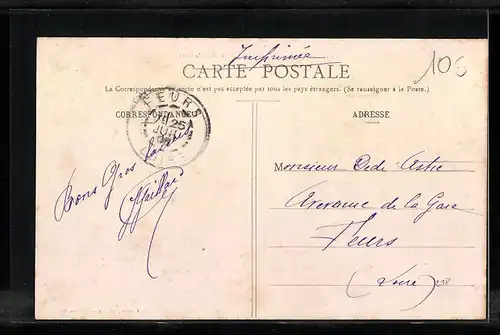 Imprimée
106
CARTE POSTALE
La Correspondance au recto n'est pas acceptée par tous les pays étrangers. (Se renseigner à la Poste.)
CORRESPONDANCE
ADRESSE
FEURS
25
LOIRE
Bons Gros
Monsieur Dede Astic
Avenue de la Gare
Feurs
(Loire)